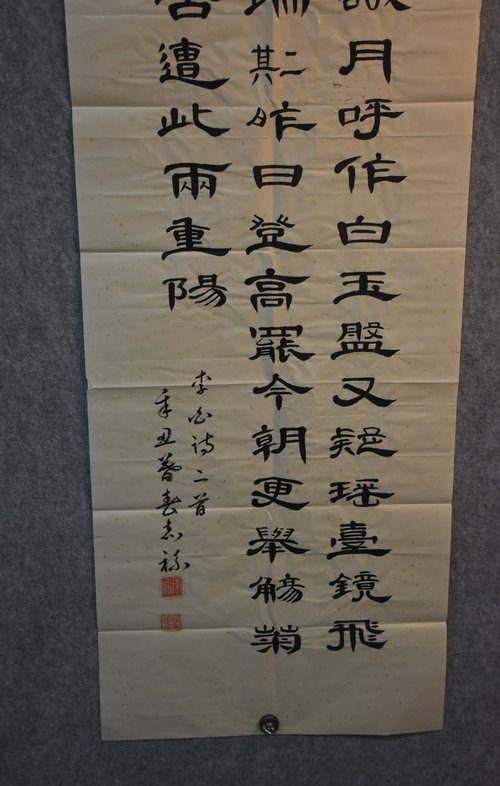 月呼作白玉盤又疑瑤臺鏡飛
端其二昨日登高罷今朝更舉觴菊
苦遭此兩重陽
李白詩二首
辛丑暮春志